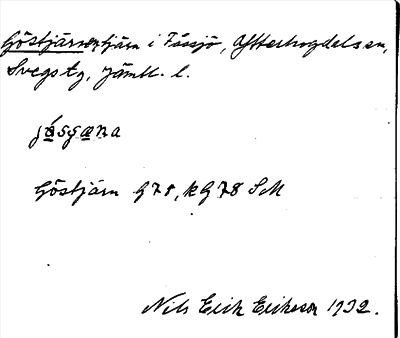 Göstjärnen, tjärn i Fåssjö, Ytterhogdals sn,
Svegs tg, Jämtl. l.
jásgæna
Göstjärn G 78, k G 78 SM
Nils Erik Eriksson 1932.